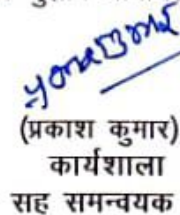 (प्रकाश कुमार)
कार्यशाला
सह समन्वयक